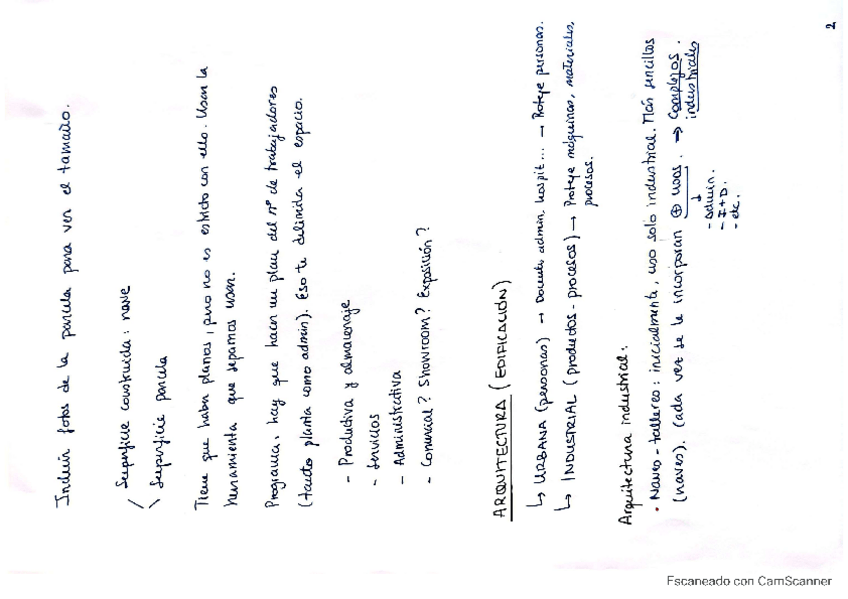 2
Incluir fotos de la parcela para ver el tamaño.
/ Superficie construida: nave
\ Superficie parcela
Tiene que haber planos, pero no es estricto con ello. Usan la
herramienta que sepamos usar.
Programa, hay que hacer un plan del nº de trabajadores
(tanto planta como admin). Eso te delimita el espacio.
- Productiva y almacenaje
- Servicios
- Administrativa
- Comercial? Showroom? Exposición?
ARQUITECTURA (EDIFICACIÓN)
↳ URBANA (personas) → Docente, admin, hospit... → Protege personas.
↳ INDUSTRIAL (productos - procesos) → Protege máquinas, materiales,
procesos.
Arquitectura industrial:
• Naves - talleres: inicialmente, uso solo industrial. Más sencillas
(naves). Cada vez se le incorporan ⊕ usos. → Complejos
industriales
↓
- admin.
- I+D.
- etc.
Escaneado con CamScanner